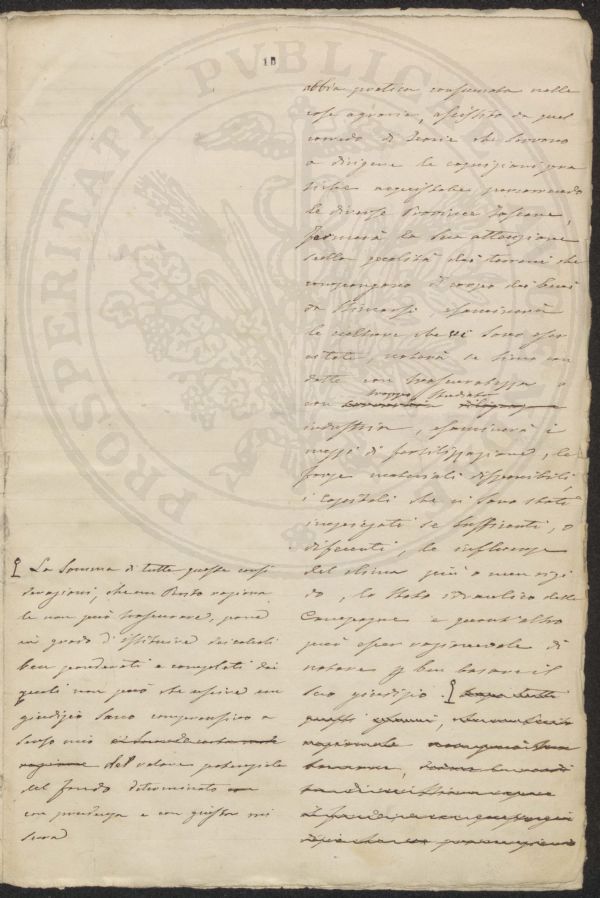 18
PROSPERITATI PVBLICAE
abbia pratica consumata nelle
cose agrarie, assistito da quel
corredo di Teorie che servono
a dirigere le cognizioni pra
tiche acquistate percorrendo
le diverse Province Toscane,
fermerà la sua attenzione
sulla qualità dei terreni che
compongono il corpo dei beni
da stimarsi, esaminerà
le colture che vi sono eser
citate, noterà se sono con
dotte con trascuratezza o
troppo studiata
con
industria, esaminerà i
mezzi di fertilizzazione, le
forze materiali disponibili
i Capitali che vi sono stati
impiegati se sufficienti, o
deficienti, le influenze
del clima più o men rigi
do, lo stato idraulico delle
Campagne e quant'altro
può esser ragionevole di
notare p ben basare il
suo giudizio.
La Somma di tutte queste consi
derazioni, che un Perito raziona
le non può trascurare, pone
in grado d'istituire dei calcoli
ben ponderati e completi dai
quali non può che uscire un
giudizio sano comprensivo a
senso mio
del valore potenziale
del fondo determinato
con prudenza e con giusta mi
sura